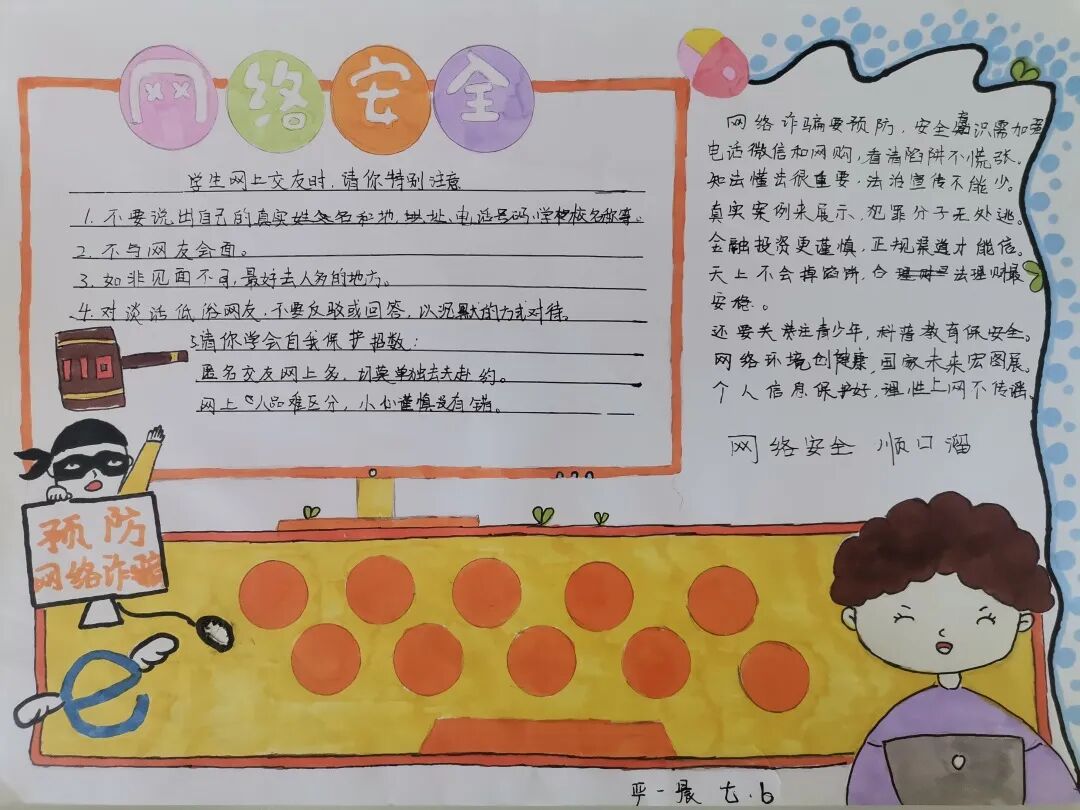 网络安全
学生网上交友时，请你特别注意
1. 不要说出自己的真实姓名和地址、电话号码、学校名称等。
2. 不与网友会面。
3. 如非见面不可，最好去人多的地方。
4. 对谈话低俗网友，不要反驳或回答，以沉默的方式对待。
5请你学会自我保护招数：
匿名交友网上多，切莫单独去赴约。
网上人品难区分，小心谨慎没有错。
110
预防
网络诈骗
e
网络诈骗要预防，安全意识需加强
电话微信和网购，看清陷阱不慌张。
知法懂法很重要，法治宣传不能少。
真实案例来展示，犯罪分子无处逃。
金融投资更谨慎，正规渠道才能信。
天上不会掉馅饼，合法理财最
安稳。
还要关注青少年，科普教育保安全。
网络环境创健康，国家未来宏图展。
个人信息保护好，理性上网不传谣。
网络安全 顺口溜
七.6